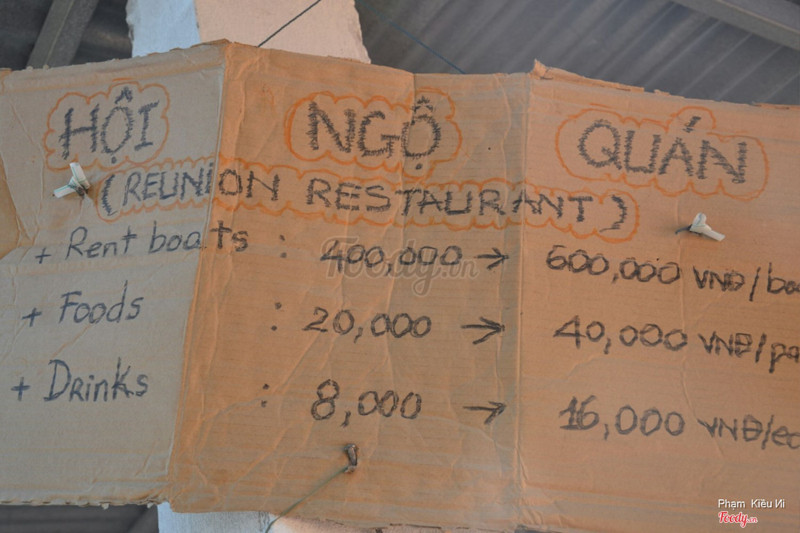 HỘI NGỘ QUÁN
(REUNION RESTAURANT)
+ Rent boats : 400,000 → 600,000 VNĐ/boa
+ Foods : 20,000 → 40,000 VNĐ/pa
+ Drinks : 8,000 → 16,000 VNĐ/ea
Foody.vn
Phạm Kiều Ni
Foody.vn